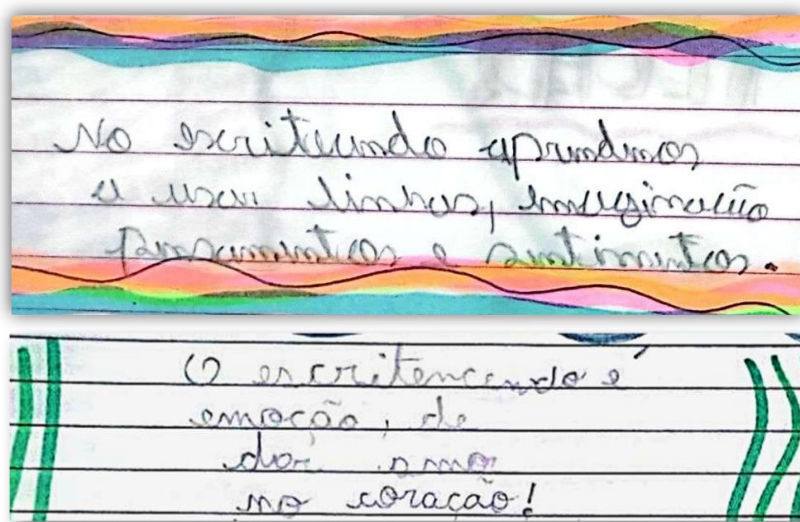 No escriteundo aprendemos
a usar linhas, imaginação
pensamentos e sentimentos.
O escritencendo é
emoção, de
dor amo
no coração!